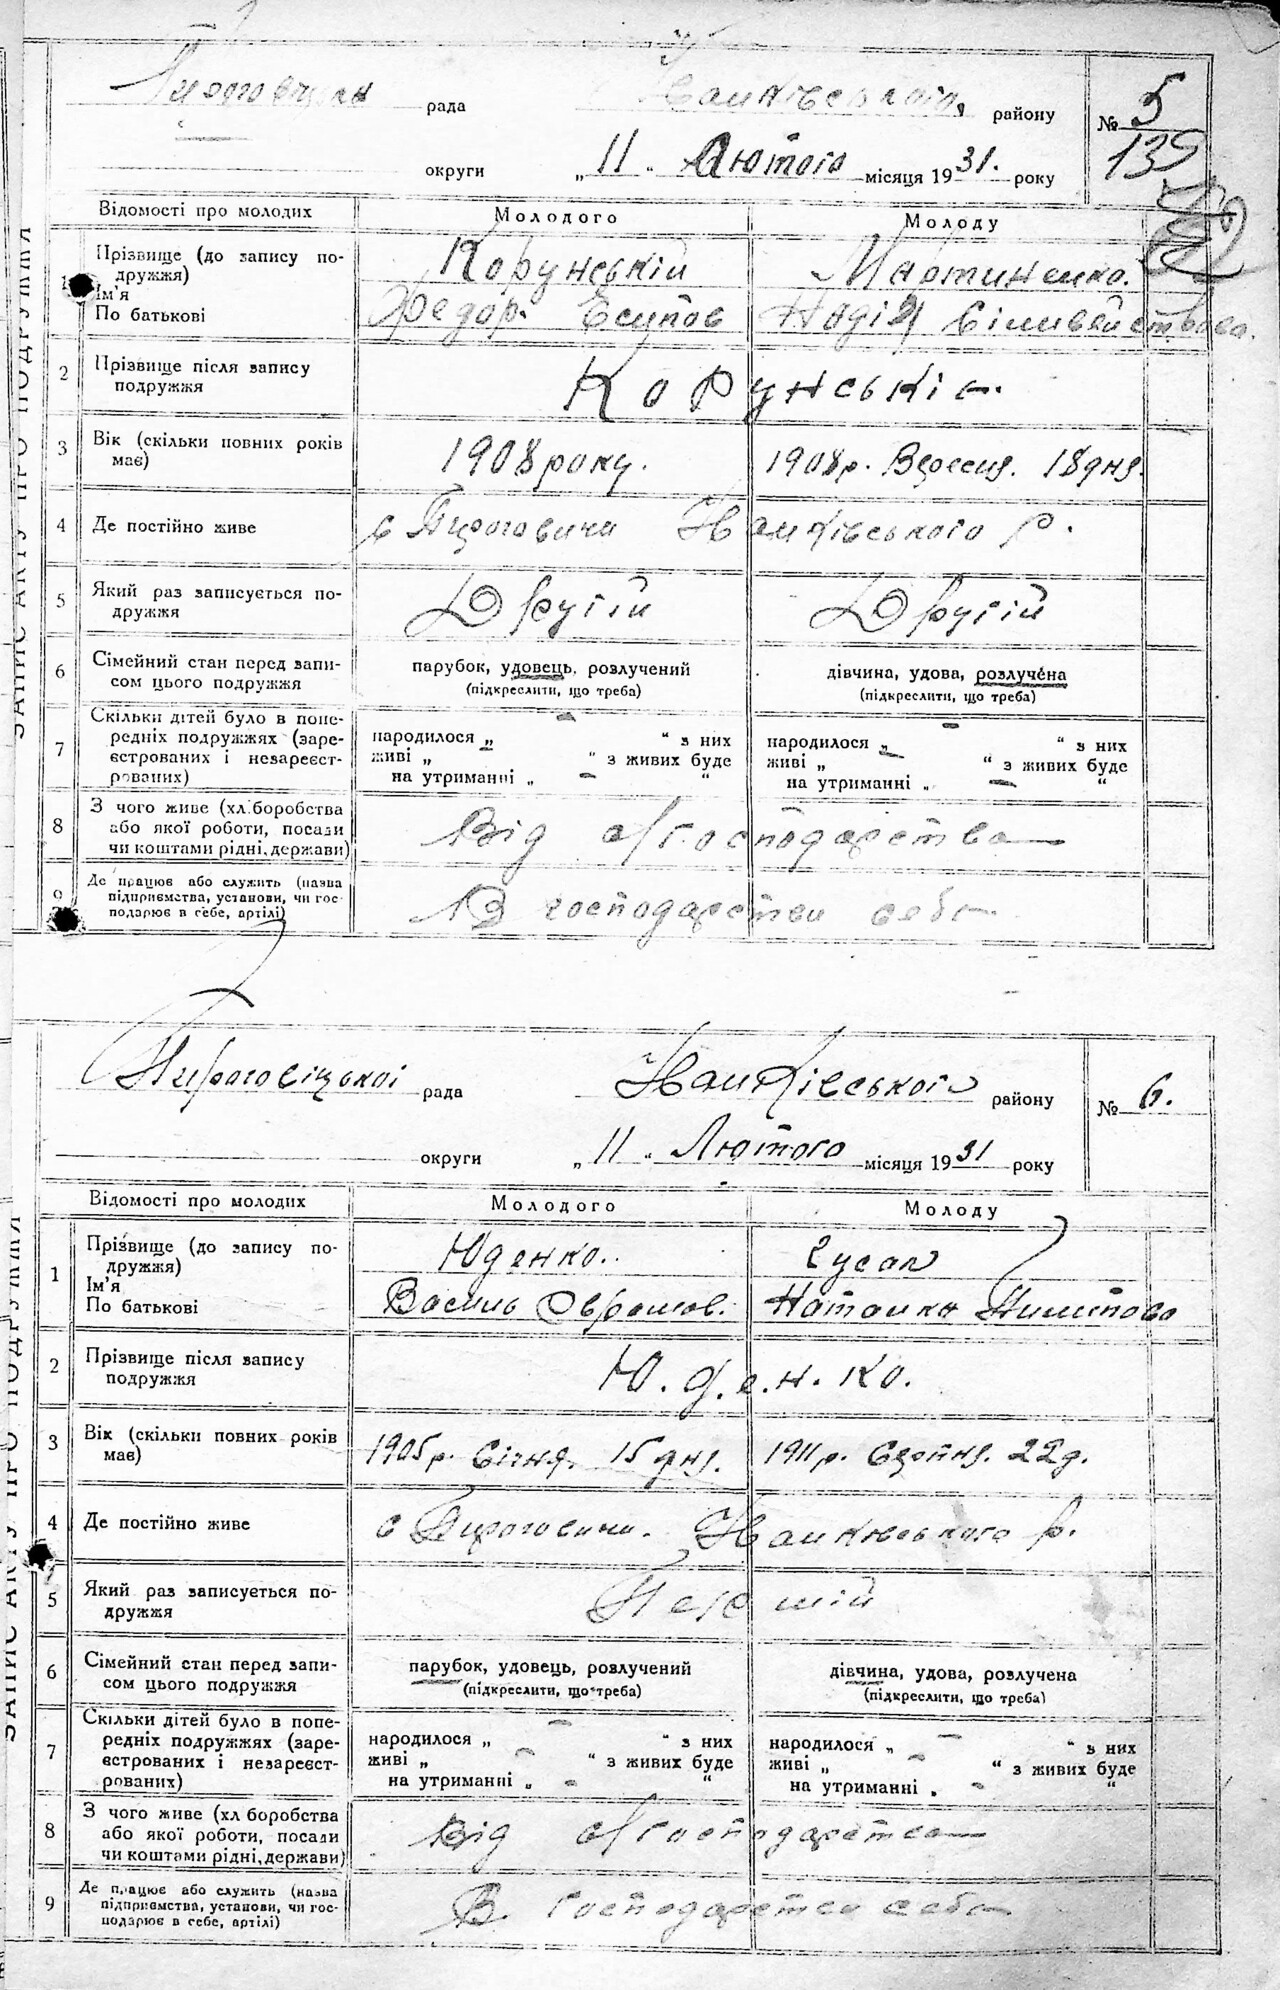 рада Іванківського, району № 5
135
округи „ 11 " Лютого місяця 1931. року
ЗАПИС АКТУ ПРО ПОДРУЖЖЯ
Відомості про молодих Молодого Молоду
1 Прізвище (до запису по-
дружжя) Корунський Мартиненко.
Ім'я
По батькові Федор. Есипов Надія
2 Прізвище після запису
подружжя Корунські
3 Вік (скільки повних років
має) 1908 року. 1908 р. Вересня. 18 дня.
4 Де постійно живе с Пироговичи Іванківського Р.
5 Який раз записується по-
дружжя Другій Другій
6 Сімейний стан перед запи-
сом цього подружжя парубок, удовець, розлучений дівчина, удова, розлучена
(підкреслити, що треба) (підкреслити, що треба)
7 Скільки дітей було в попе-
редніх подружжях (заре-
єстрованих і незареєст-
рованих)
народилося „ — " з них народилося „ — " з них
живі „ — " з живих буде живі „ — " з живих буде
на утриманні „ — " на утриманні „ — "
8 З чого живе (хл.боробства
або якої роботи, посади
чи коштами рідні, держави) Від с/господарства
9 Де працює або служить (назва
підприємства, установи, чи гос-
подарює в себе, артілі) В господарстви себе
Пироговіцької рада Іванківського району № 6.
округи „ 11 " Лютого місяця 1931 року
ЗАПИС АКТУ ПРО ПОДРУЖЖЯ
Відомості про молодих Молодого Молоду
1 Прізвище (до запису по-
дружжя) Юденко. Гусак
Ім'я
По батькові Василь Овромов. Наталка Пилипова
2 Прізвище після запису
подружжя Ю.д.е.н.ко.
3 Вік (скільки повних років
має) 1905 р. Січня. 15 дня. 1911 р. Серпня. 22 д.
4 Де постійно живе с Пироговичи. Іванківського р.
5 Який раз записується по-
дружжя Перший
6 Сімейний стан перед запи-
сом цього подружжя парубок, удовець, розлучений дівчина, удова, розлучена
(підкреслити, що треба) (підкреслити, що треба)
7 Скільки дітей було в попе-
редніх подружжях (заре-
єстрованих і незареєст-
рованих)
народилося „ — " з них народилося „ — " з них
живі „ — " з живих буде живі „ — " з живих буде
на утриманні „ — " на утриманні „ — "
8 З чого живе (хл боробства
або якої роботи, посади
чи коштами рідні, держави) Від с/господарства
9 Де працює або служить (назва
підприємства, установи, чи гос-
подарює в себе, артілі) В господарстви себе